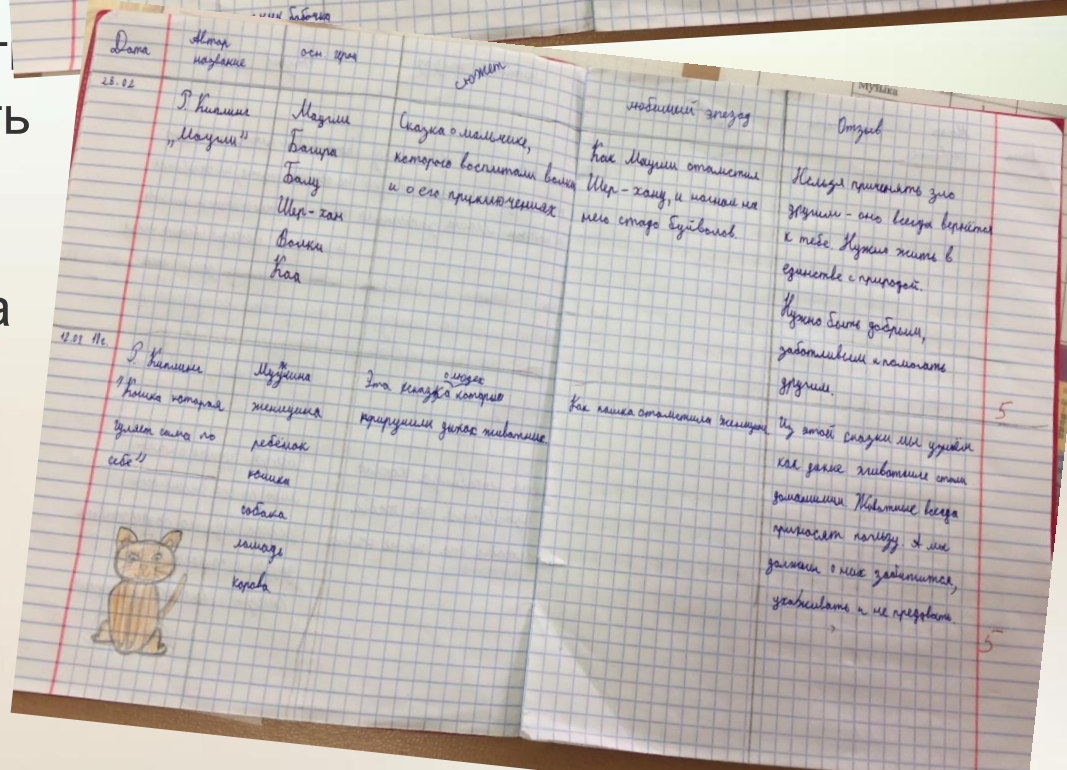 ть
а
бабочка
Музыка
Дата
Автор
название
осн. герои
сюжет
любимый эпезод
Отзыв
28.02
Р. Киплинг
„Маугли"
Маугли
Багира
Балу
Шер-хан
Волки
Каа
Сказка о мальчике,
которого воспитали волки
и о его приключениях
Как Маугли отомстил
Шер-хану, и нагнал на
него стадо буйволов.
Нельзя причинять зло
другим - оно всегда вернётся
к тебе. Нужно жить в
единстве с природой.
Нужно быть добрым,
заботливым и помогать
другим.
5
12.03
Р. Киплинг
"Кошка которая
гуляет сама по
себе"
Мужчина
женщина
ребёнок
кошка
собака
лошадь
корова
о людях
Эта сказка которые
приручили диких животных.
Как кошка отомстила женщине
Из этой сказки мы узнаём
как дикие животные стали
домашними. Животные всегда
приносят пользу. А мы
должны о них заботится,
ухаживать и не предовать.
5